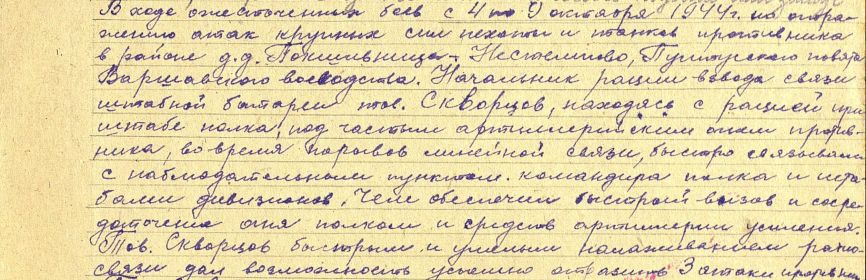 В ходе ожесточенных боев с 4 по 9 октября 1944 г. по отра-
жению атак крупных сил пехоты и танков противника
в районе д.д. Покшивница - Нестемпово, Пултуского повята
Варшавского воеводства. Начальник рации взвода связи
штабной батареи тов. Скворцов, находясь с рацией при
штабе полка, под частым артиллерийским огнем против-
ника, во время порывов линейной связи, быстро связывался
с наблюдательным пунктом командира полка и шта-
бами дивизионов. Чем обеспечил быстрый вызов и сосре-
доточение огня полком и средств артиллерии усиления.
Тов. Скворцов быстрым и умелым налаживанием радио-
связи дал возможность успешно отразить 3 атаки противни